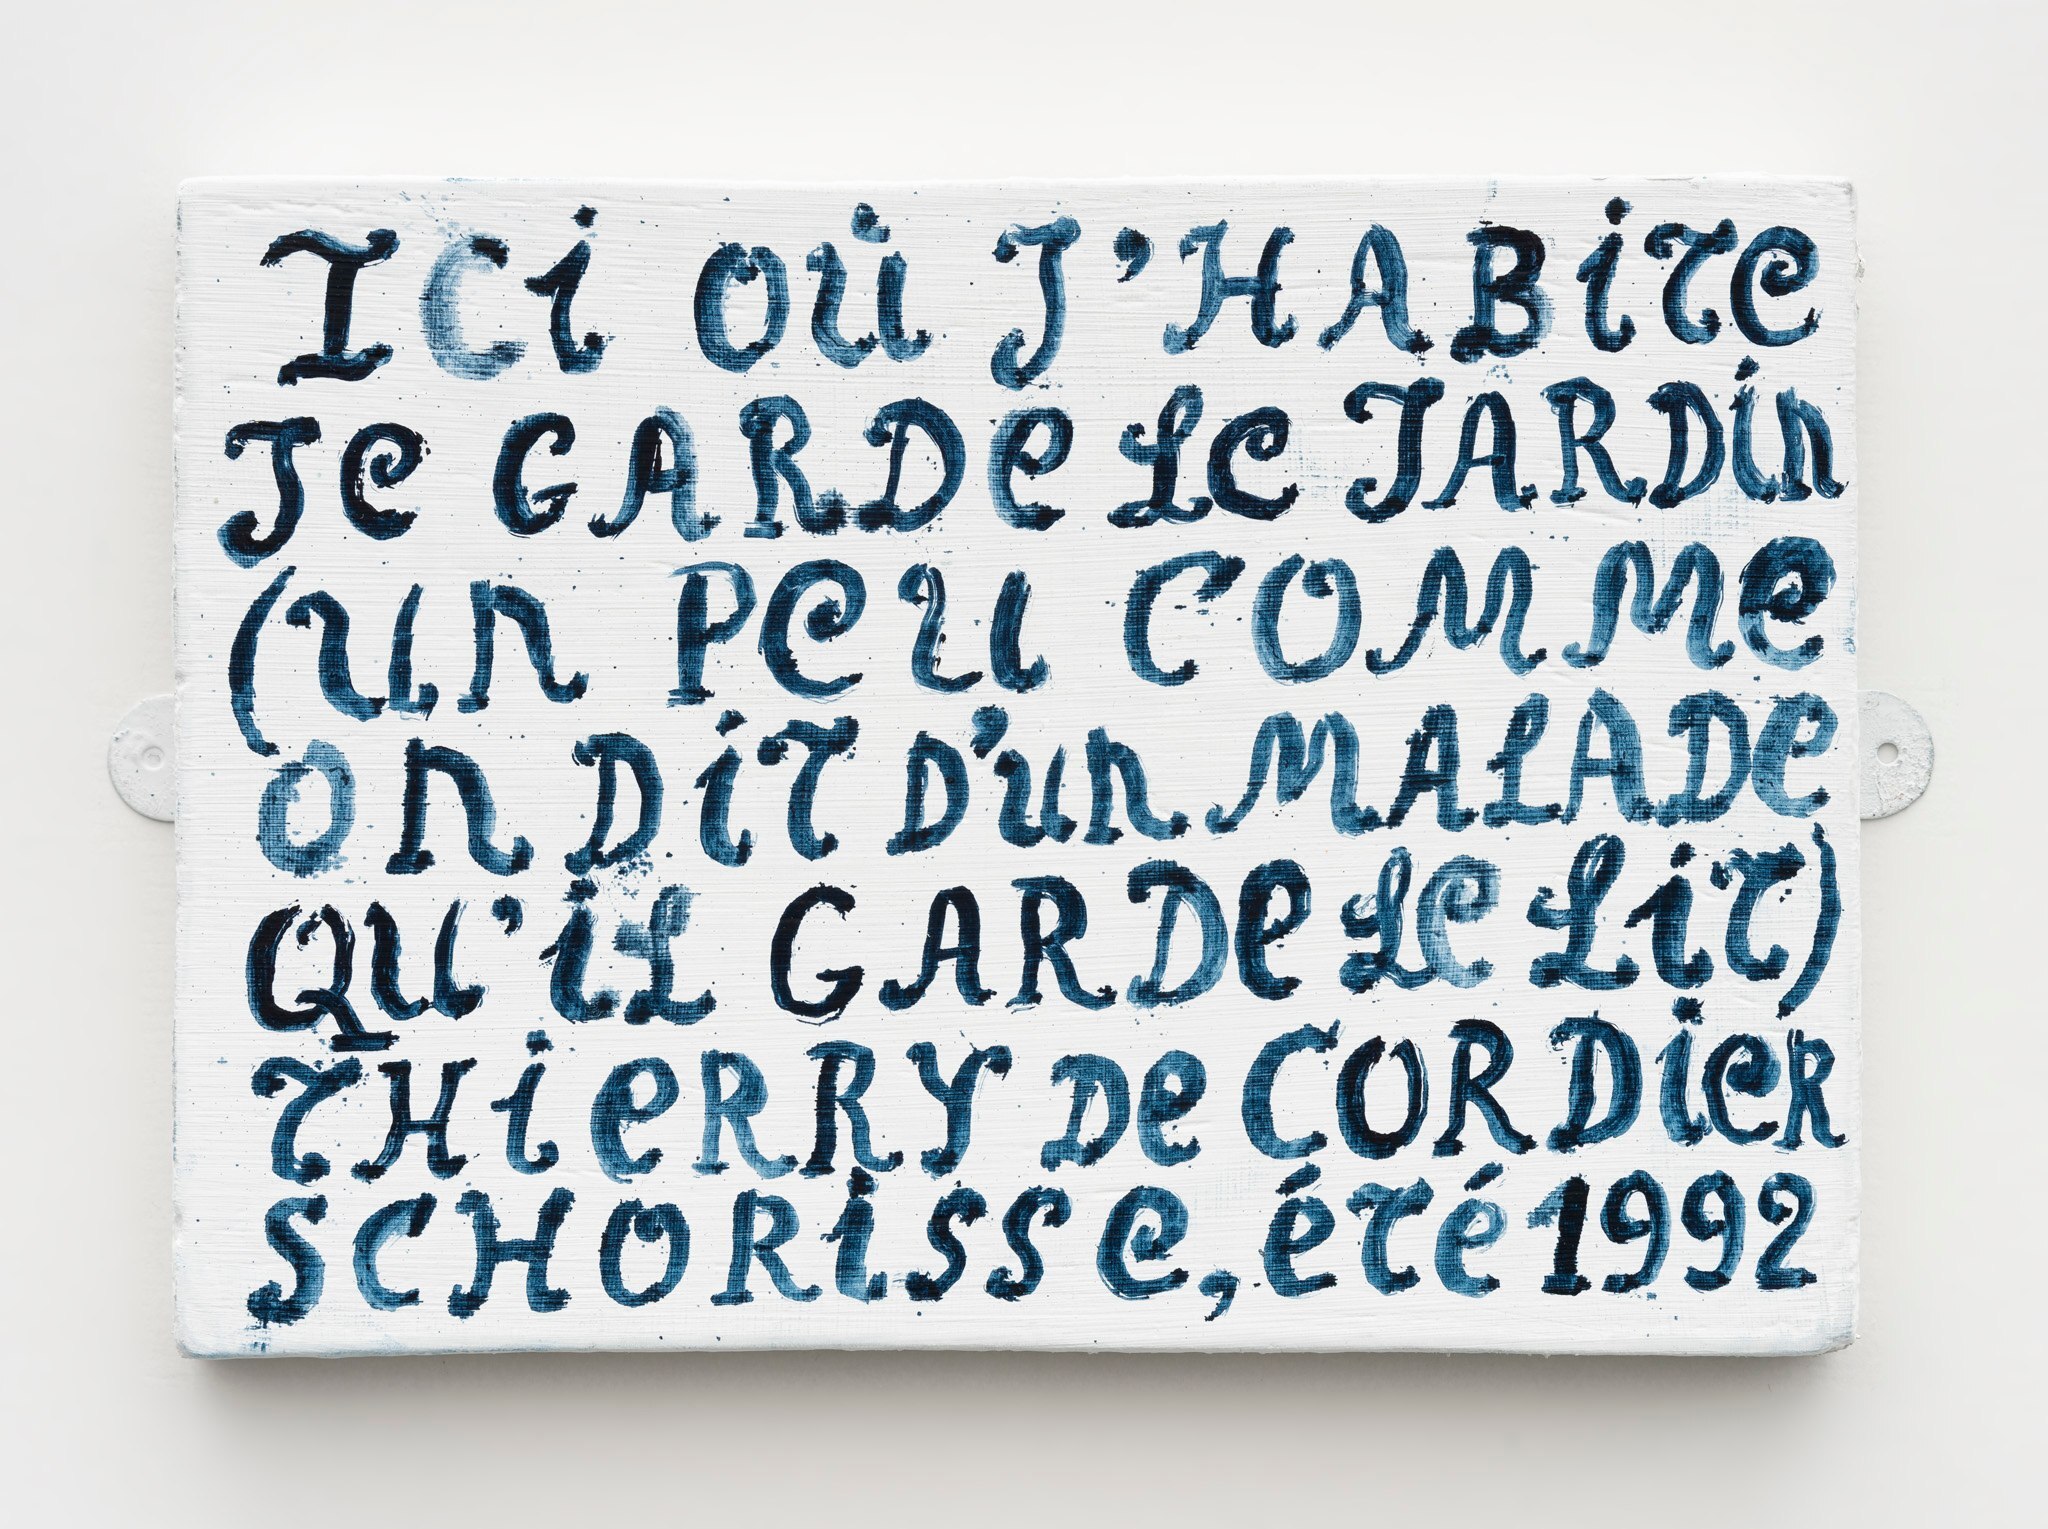 ICi Où J'HABiTe
Je GARDe Le JARDin
(un Peu COMMe
On DiT D'un MALADe
Qu'iL GARDe Le LiT)
THieRRY De CORDieR
SCHORiSSe, éTé 1992